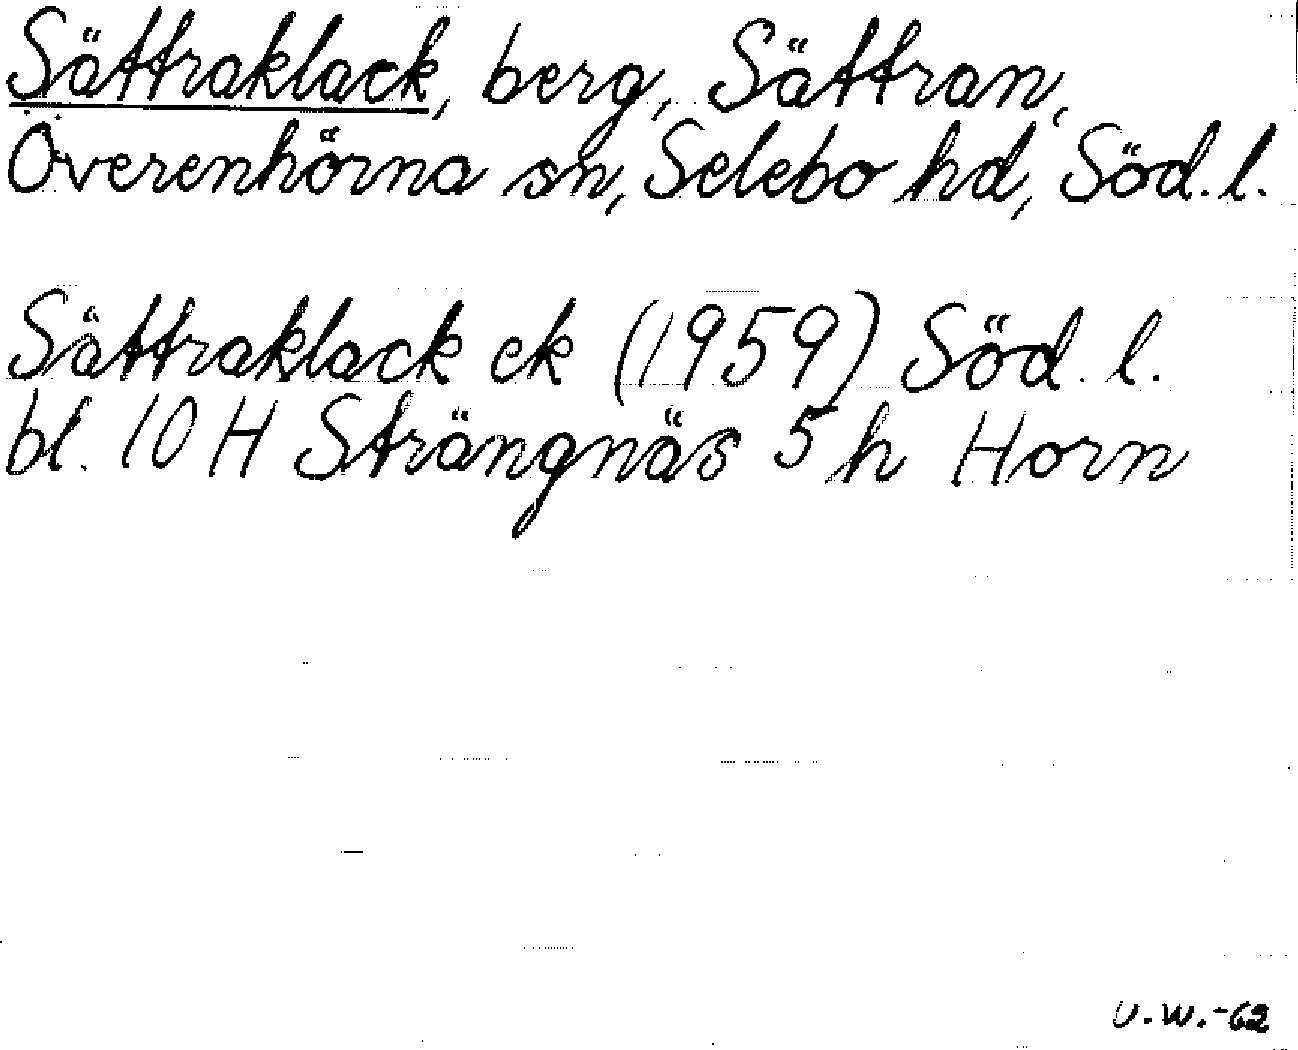 Sättraklack, berg, Sättran,
Överenhörna sn, Selebo hd, Söd. l.
Sättraklack ek (1959) Söd. l.
bl. 10 H Strängnäs 5 h Horn
U.W.-62